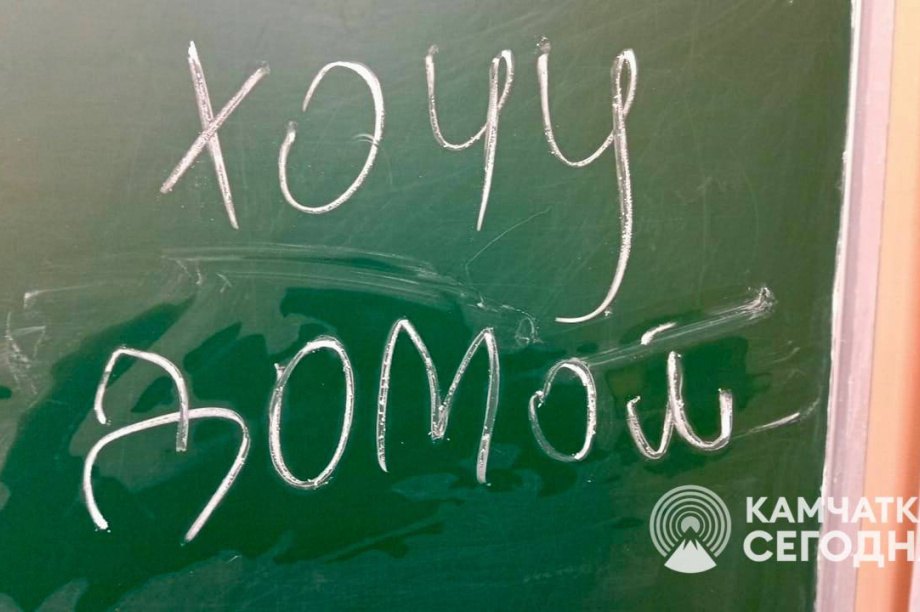 хочу
домой
КАМЧАТК
СЕГОДН